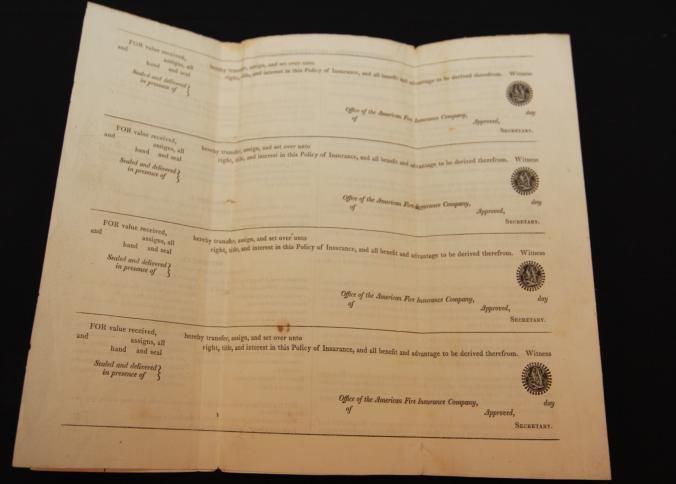 FOR value received, hereby transfer, assign, and set over unto
and assigns, all right, title, and interest in this Policy of Insurance, and all benefit and advantage to be derived therefrom. Witness
hand and seal
Sealed and delivered }
in presence of }
Office of the American Fire Insurance Company, day
of Approved,
SECRETARY.
FOR value received, hereby transfer, assign, and set over unto
and assigns, all right, title, and interest in this Policy of Insurance, and all benefit and advantage to be derived therefrom. Witness
hand and seal
Sealed and delivered }
in presence of }
Office of the American Fire Insurance Company, day
of Approved,
SECRETARY.
FOR value received, hereby transfer, assign, and set over unto
and assigns, all right, title, and interest in this Policy of Insurance, and all benefit and advantage to be derived therefrom. Witness
hand and seal
Sealed and delivered }
in presence of }
Office of the American Fire Insurance Company, day
of Approved,
SECRETARY.
FOR value received, hereby transfer, assign, and set over unto
and assigns, all right, title, and interest in this Policy of Insurance, and all benefit and advantage to be derived therefrom. Witness
hand and seal
Sealed and delivered }
in presence of }
Office of the American Fire Insurance Company, day
of Approved,
SECRETARY.